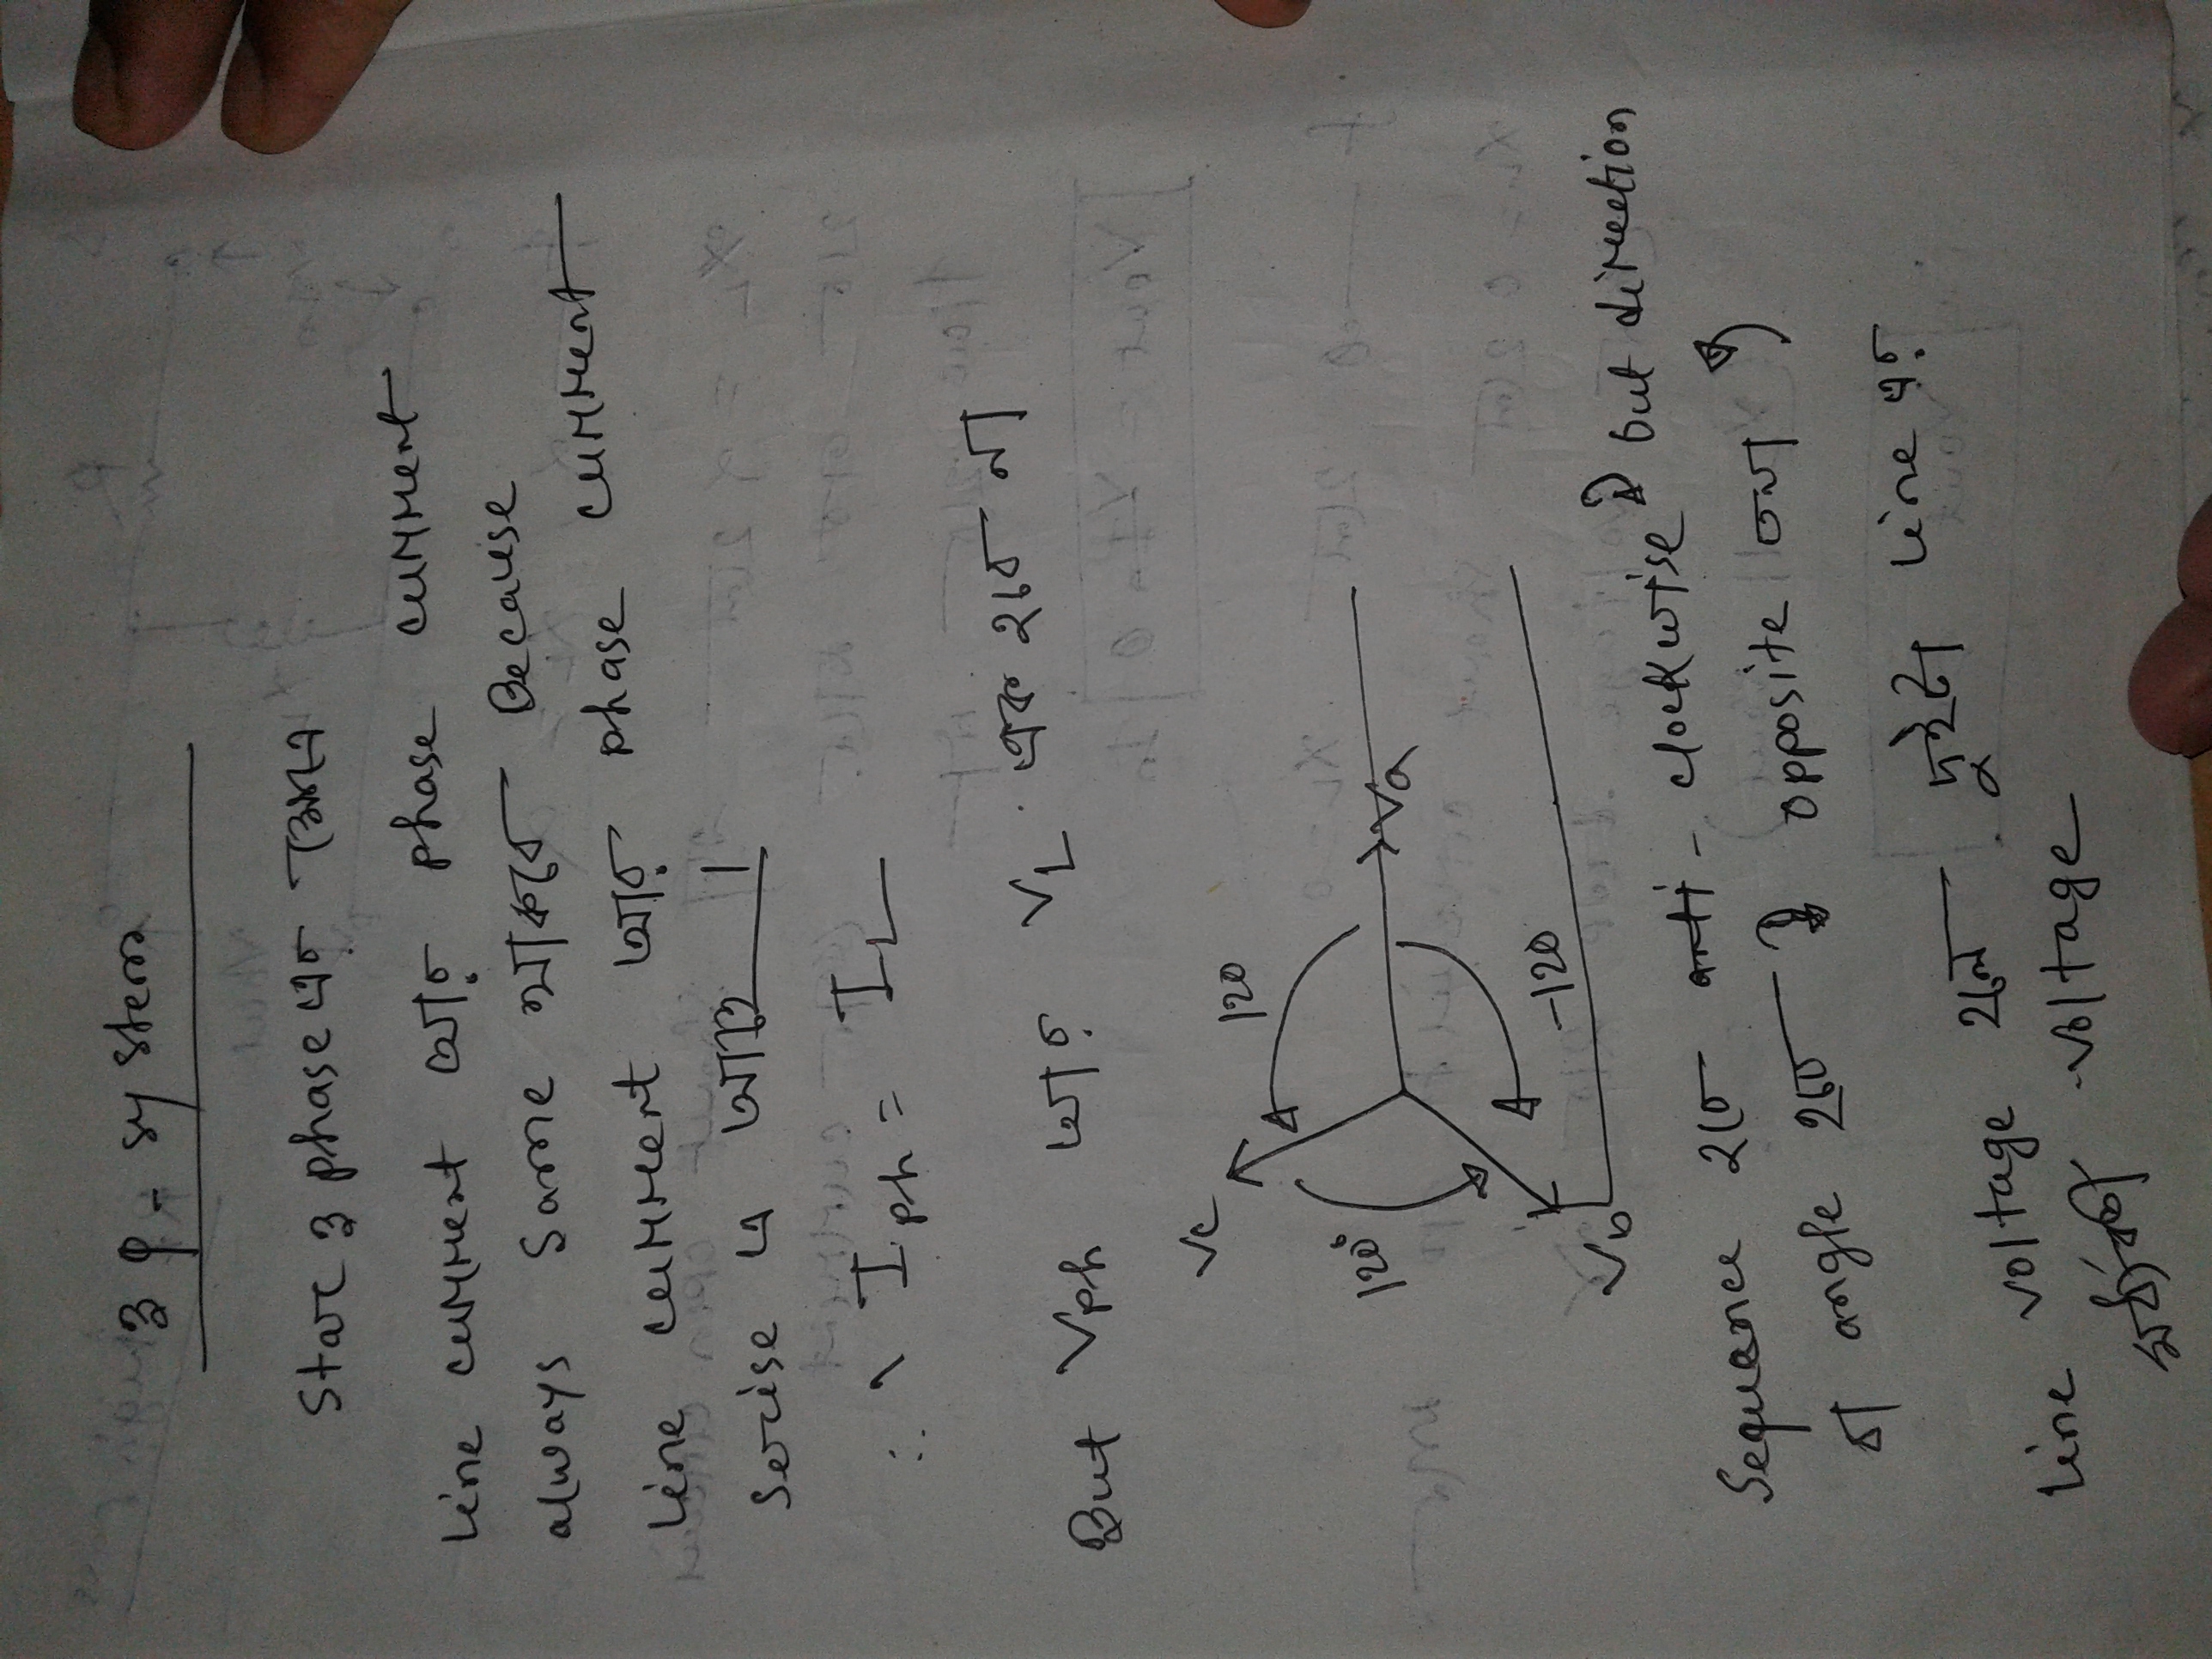 3 φ - system
Star 3 phase এর ক্ষেত্রে
Line current আর phase current
always same থাকবে Because
Line current আর phase current
serise এ আছে ।
∴ I ph = I L
But Vph আর VL এক হবে না
Vc
120
120°
Va
-120
Vb
Sequence হবে anti - clockwise but direction
বা angle হবে opposite
Line voltage হলো দুইটা Line এর
মধ্যবর্তী voltage